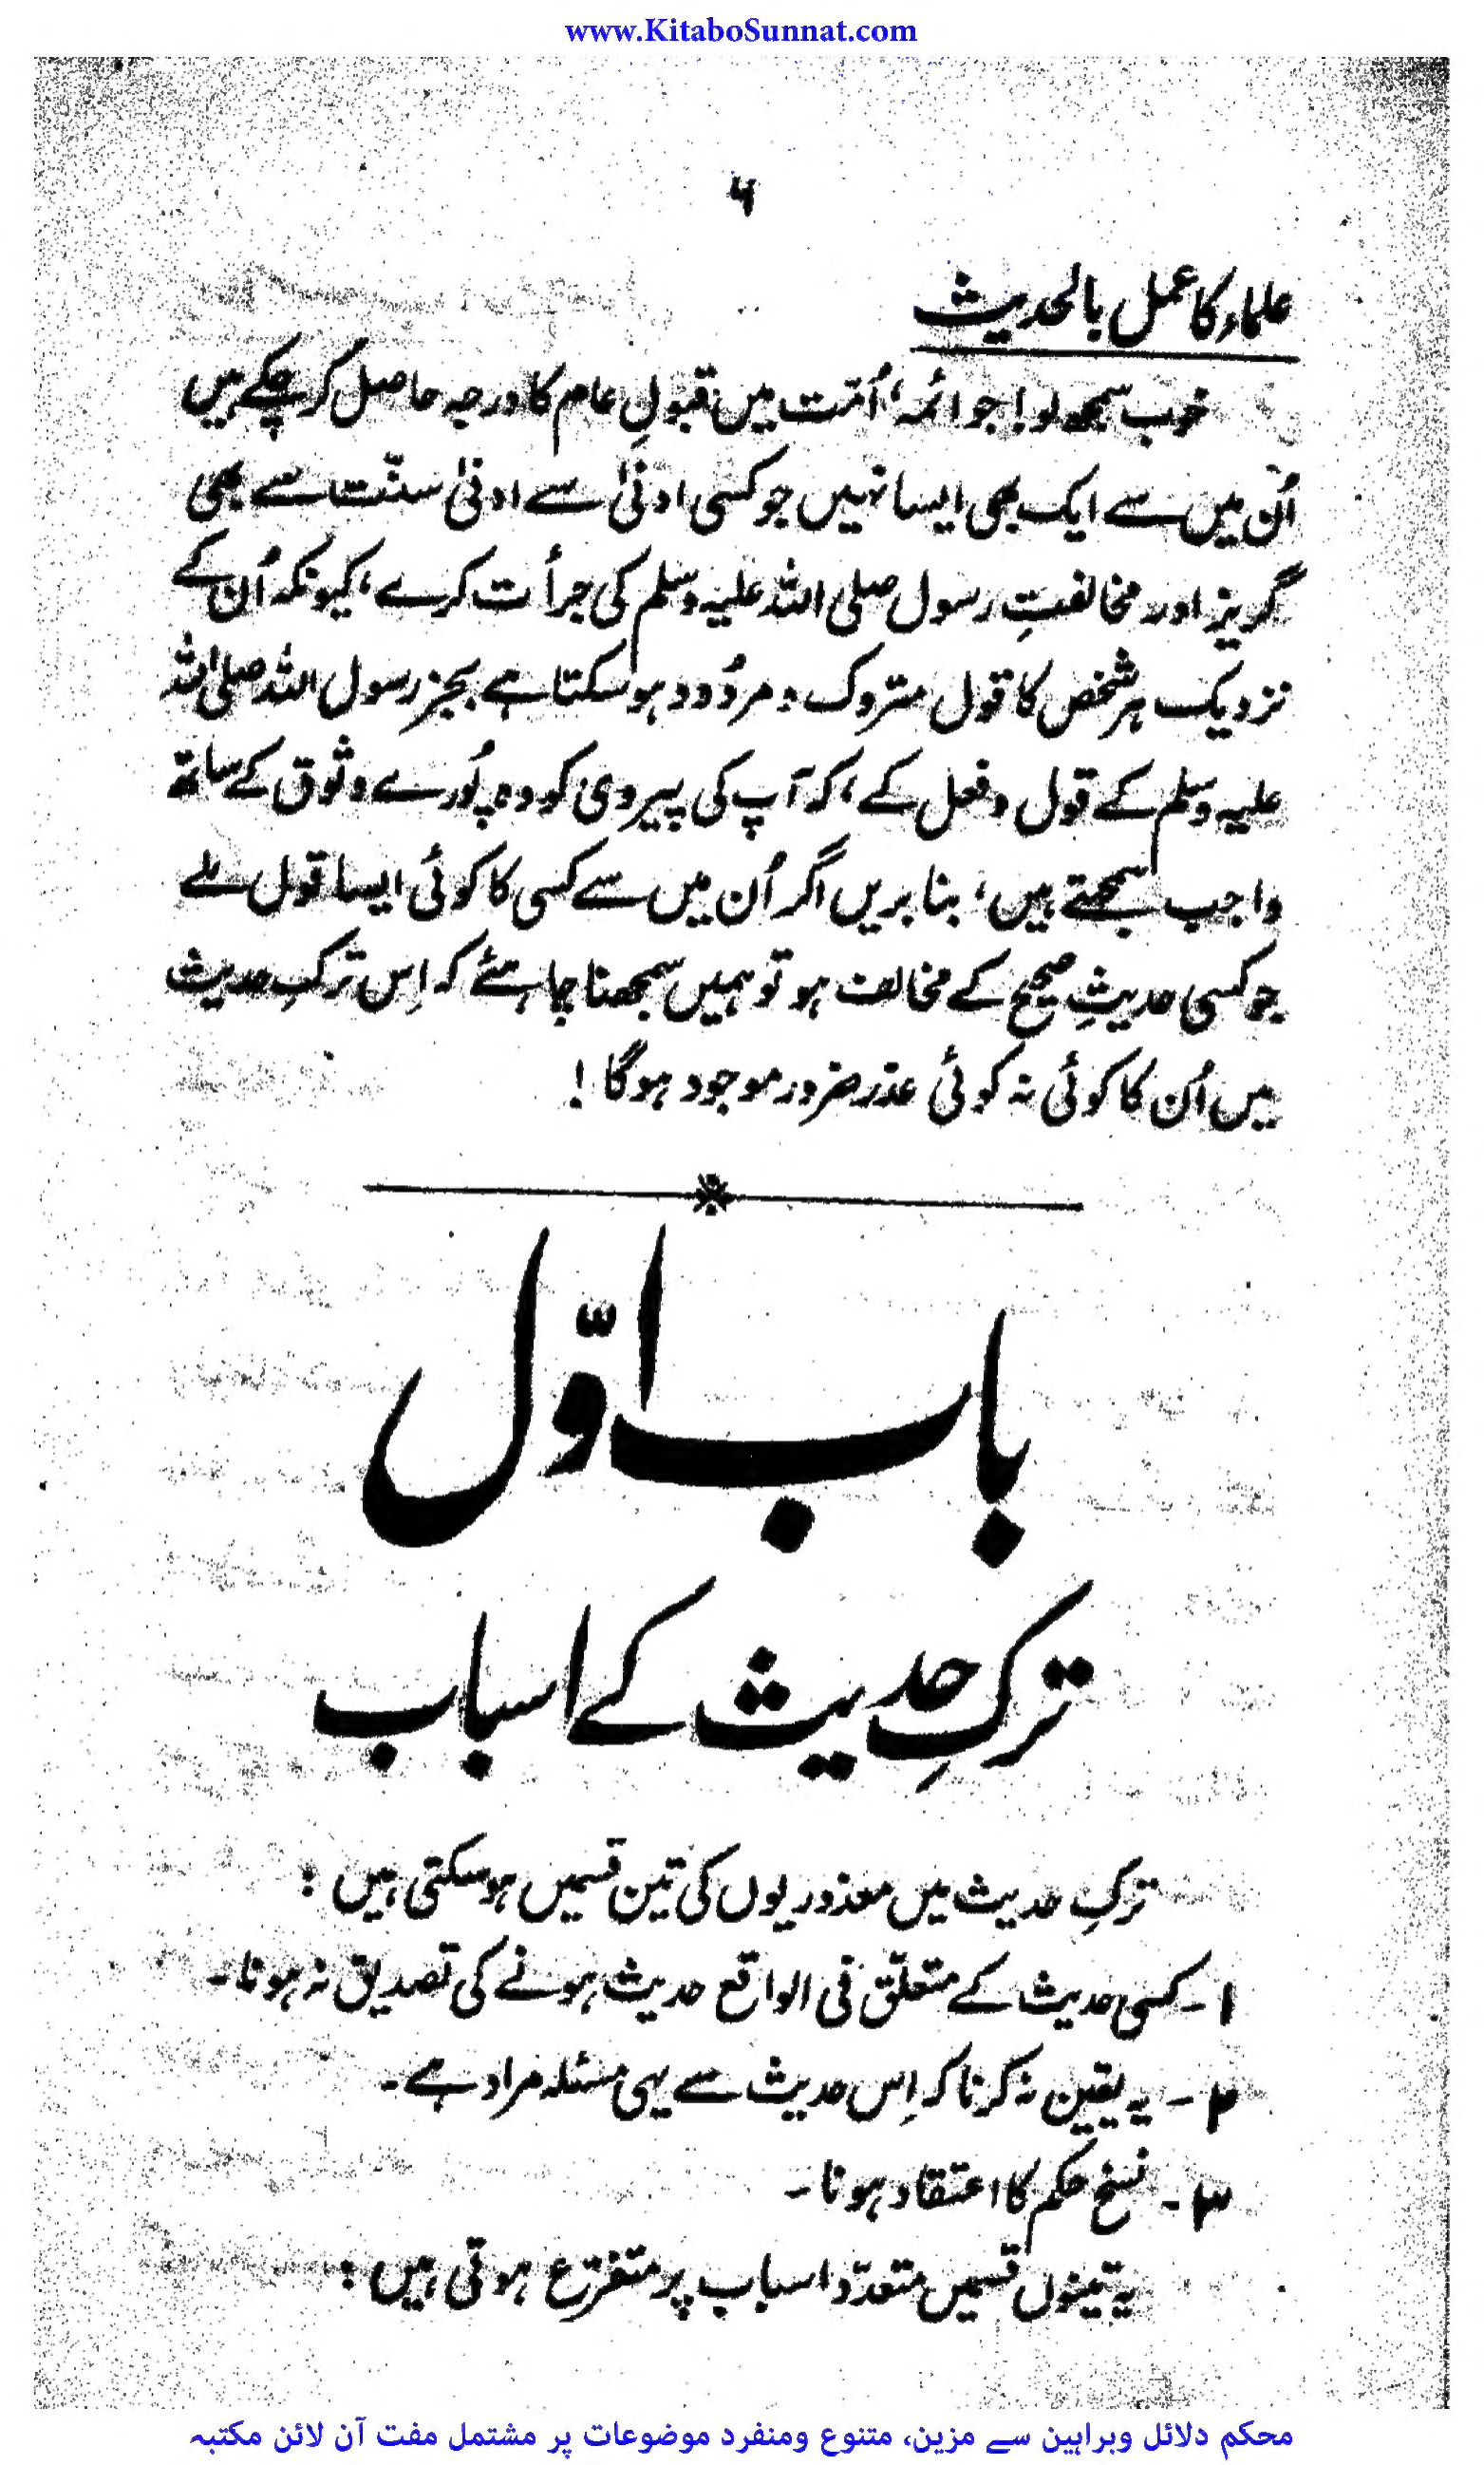 www.KitaboSunnat.com
۶
علماء کا عمل بالحدیث
خوب سمجھ لو! جو ائمہ، اُمّت میں قبولِ عام کا درجہ حاصل کر چکے ہیں
اُن میں سے ایک بھی ایسا نہیں جو کسی ادنیٰ سے ادنیٰ سنّت سے بھی
گریز اور مخالفتِ رسول صلی اللہ علیہ وسلم کی جرأت کرے، کیونکہ اُن کے
نزدیک ہر شخص کا قول متروک و مردُود ہو سکتا ہے بجز رسول اللہ صلی اللہ
علیہ وسلم کے قول و فعل کے، کہ آپ کی پیروی کو وہ پُورے وثوق کے ساتھ
واجب سمجھتے ہیں، بنا بریں اگر اُن میں سے کسی کا کوئی ایسا قول ملے
جو کسی حدیثِ صحیح کے مخالف ہو تو ہمیں سمجھنا چاہئے کہ اِس ترکِ حدیث
میں اُن کا کوئی نہ کوئی عذر ضرور موجود ہوگا !
باب اوّل
ترکِ حدیث کے اسباب
ترکِ حدیث میں معذوریوں کی تین قسمیں ہو سکتی ہیں :
۱- کسی حدیث کے متعلّق فی الواقع حدیث ہونے کی تصدیق نہ ہونا۔
۲- یہ یقین نہ کرنا کہ اِس حدیث سے یہی مسئلہ مراد ہے۔
۳- نسخِ حکم کا اعتقاد ہونا۔
یہ تینوں قسمیں متعدّد اسباب پر متفرّع ہوتی ہیں :
محکم دلائل وبراہین سے مزین، متنوع ومنفرد موضوعات پر مشتمل مفت آن لائن مکتبہ